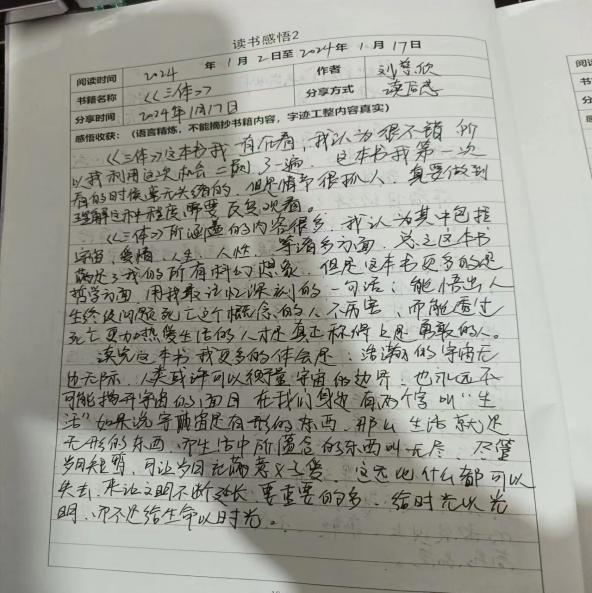 读书感悟2
阅读时间 2024 年 1 月 2 日至 2024 年 1 月 17 日
书籍名称 《三体》 作者 刘慈欣
分享时间 2024年1月17日 分享方式 读后感
感悟收获：（语言精炼，不能摘抄书籍内容，字迹工整内容真实）
《三体》这本书我一有所看，我认为很不错，所
以我利用这次机会二刷了一遍，这本书我第一次
看的时候毫无头绪的，但是情节很抓人，真要做到
理解这种程度需要反复观看。
《三体》所涵盖的内容很多，我认为其中包括
宇宙，爱情，人生，人性，等诸多方面，总之这本书
满足了我的所有科幻想象，但是这本书更多的是
哲学方面，用我最记忆深刻的一句话：能悟出人
生终极问题死亡这个概念的人不厉害，而能透过
死亡更加热爱生活的人才是真正称得上是勇敢的人。
读完这本书，我更多的体会是：浩瀚的宇宙无
边无际，人类或许可以衡量宇宙的边界，也永远不
可能揭开宇宙的面目，在我们身边有两个字叫“生
活”如果说宇宙是有形的东西，那么生活就是
无形的东西，而生活中所蕴含的东西叫无尽，尽管
岁月短暂，可让岁月充满意义与爱，这远比什么都可以
失去，来让文明不断延长，要重要的多，给时光以光
明，而不是给生命以时光。